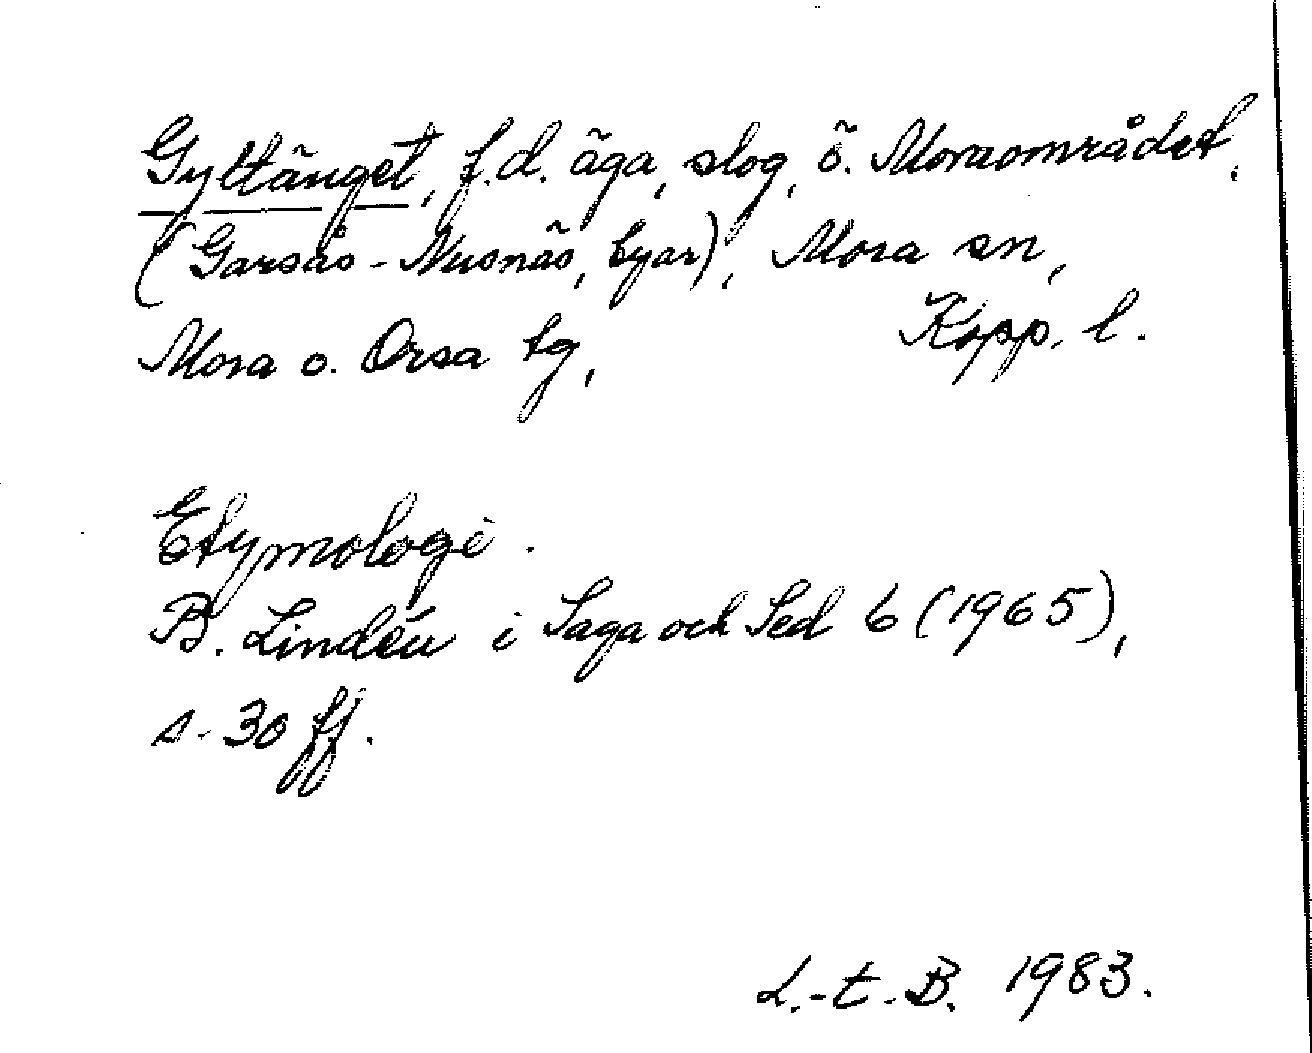 Gyltänget, f.d. äga, slog, ö. Moraområdet,
(Garsås - Nusnäs, byar), Mora sn,
Mora o. Orsa tg, Kopp. l.
Etymologi.
B. Lindén i Saga och Sed 6 (1965),
s. 30 ff.
L.-t. B. 1983.